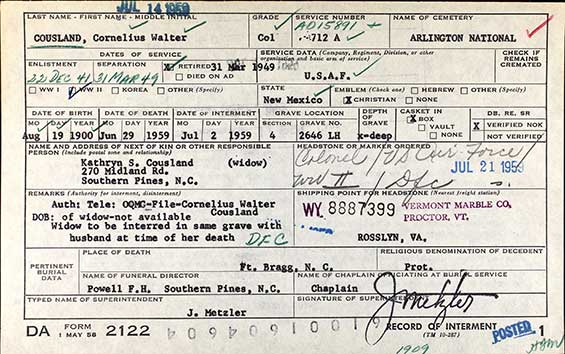 JUL 14 1959
LAST NAME - FIRST NAME - MIDDLE INITIAL GRADE SERVICE NUMBER NAME OF CEMETERY
AD15891 +
COUSLAND, Cornelius Walter Col 712 A ARLINGTON NATIONAL
DATES OF SERVICE SERVICE DATA (Company, Regiment, Division, or other organization and basic arm of service) CHECK IF REMAINS CREMATED
ENLISTMENT X RETIRED 31 Mar 1949
22 DEC 41, 31 MAR 49 DIED ON AD U.S.A.F.
WW I WW II KOREA OTHER (Specify) STATE EMBLEM (Check one) HEBREW OTHER (Specify)
New Mexico X CHRISTIAN NONE
DATE OF BIRTH DATE OF DEATH DATE OF INTERMENT GRAVE LOCATION DEPTH OF GRAVE CASKET IN DB, RE, SR
MO DAY YEAR MO DAY YEAR MO DAY YEAR SECTION GRAVE NO. X BOX X VERIFIED NOK
Aug 19 1900 Jun 29 1959 Jul 2 1959 4 2646 LH x-deep VAULT NONE NOT VERIFIED
NAME AND ADDRESS OF NEXT OF KIN OR OTHER RESPONSIBLE PERSON (Include postal zone and relationship) HEADSTONE OR MARKER ORDERED
Kathryn S. Cousland (widow) Colonel / US Air Force
270 Midland Rd. JUL 21 1959
Southern Pines, N.C. WW II / DFC
REMARKS (Authority for interment, disinterment) SHIPPING POINT FOR HEADSTONE (Nearest freight station)
Auth: Tele: OQMC-File-Cornelius Walter Cousland WY. 8887399 VERMONT MARBLE CO. PROCTOR, VT.
DOB: of widow-not available
Widow to be interred in same grave with
husband at time of her death DFC ROSSLYN, VA.
PERTINENT BURIAL DATA PLACE OF DEATH RELIGIOUS DENOMINATION OF DECEDENT
Ft. Bragg, N. C. Prot.
NAME OF FUNERAL DIRECTOR NAME OF CHAPLAIN OFFICIATING AT BURIAL SERVICE
Powell F.H. Southern Pines, N.C. Chaplain
TYPED NAME OF SUPERINTENDENT SIGNATURE OF SUPERINTENDENT
J. Metzler J Metzler
DA FORM 1 MAY 56 2122 RECORD OF INTERMENT (TM 10-287) POSTED 1
1909